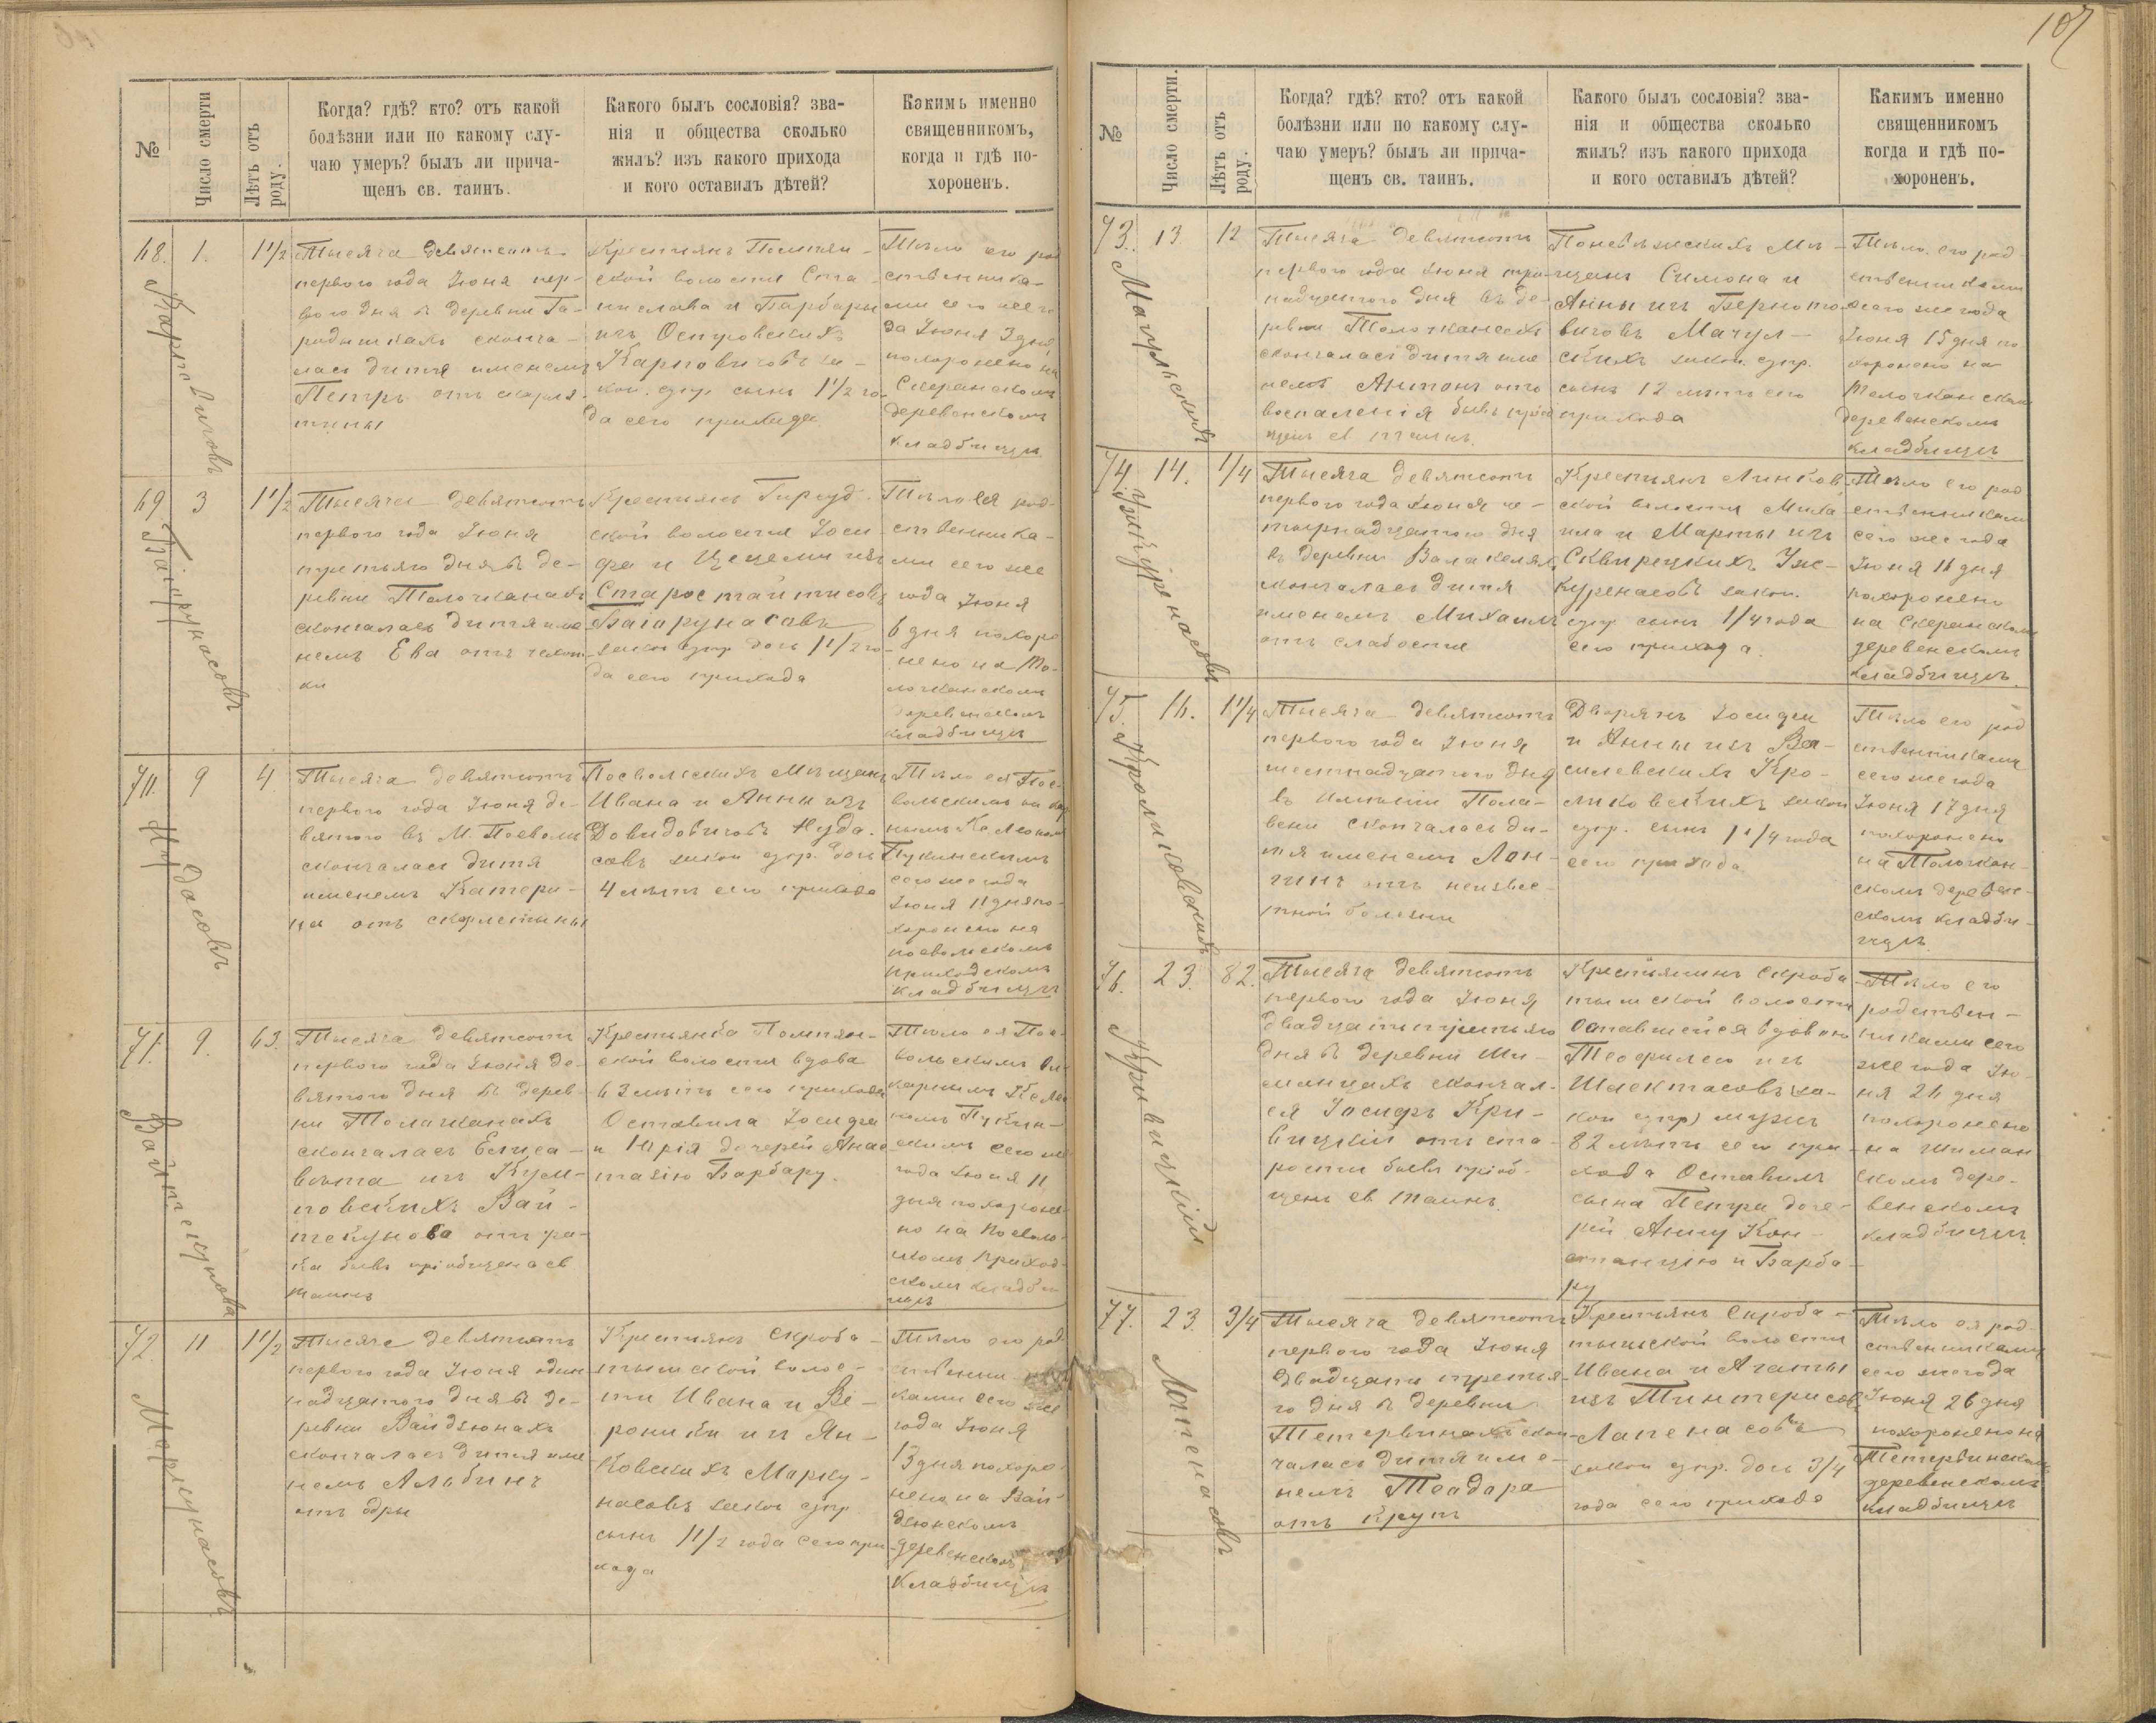 107
№
Число смерти
Лѣтъ отъ роду.
Когда? гдѣ? кто? отъ какой
болѣзни или по какому слу-
чаю умеръ? былъ ли прича-
щенъ св. таинъ.
Какого былъ сословія? зва-
нія и общества сколько
жилъ? изъ какого прихода
и кого оставилъ дѣтей?
Какимъ именно
священникомъ,
когда и гдѣ по-
хороненъ.
68.
1.
1 1/2
Карповичовъ
Тысяча девятьсотъ
первого года Іюня пер-
вого дня въ деревни Га-
радишкахъ сконча-
лась дитя именемъ
Петръ отъ скарла-
тины
Крестьянъ Помпян-
ской волости Ста-
нислава и Барбары
изъ Островскихъ
Карповичовъ за-
кон. супр. сынъ 1 1/2 го-
да сего прихода
Тѣло его род
ственника-
ми сего же го
да Іюня 3 дня
похоронено на
Скеранском
деревенскомъ
кладбищѣ.
69
3
1 1/2
Тысяча девятьсотъ
первого года Іюня
третьяго дня въ де-
ревни Толочканахъ
скончалась дитя име
немъ Ева отъ чахот-
ки
Крестьянъ Гируд.
ской волости Іоси
фа и Цецели изъ
Старостайтисовъ
закон супр дочь 1 1/2 го-
да сего прихода
Тѣло ея род-
ственника-
ми сего же
года Іюня
6 дня похоро
нено на То-
лочканскомъ
деревенскомъ
кладбищѣ
70.
9
4
Нудасовъ
Тысяча девятьсотъ
первого года Іюня де-
вятого въ М. Посволи
скончалась дитя
именемъ Катери-
на отъ скарлетины
Посвольскихъ Мѣщанъ
Ивана и Анны изъ
Довидовичовъ Нуда-
совъ закон супр. дочь
4 лѣтъ сего прихода
Тѣло ея Пос-
вольскимъ
сего же года
Іюня 11 дня по-
хоронено на
посвольскомъ
приходскомъ
кладбищѣ
71.
9.
63.
Вайтекунова
Тысяча девятьсотъ
первого года Іюня де-
вятого дня въ дерев-
ни Толочканахъ
скончалась Елиса-
вета изъ
Вай-
текунова отъ ра-
ка бывъ пріобщена св
таинъ
Крестьянка Помпян-
ской волости вдова
63 лѣтъ сего прихода
Оставила Іосифа
и Юрія дочерей Анас
тазію Барбару.
Тѣло ея Пос-
вольскимъ Ви
каріемъ
сего же
года Іюня 11
дня похороне-
но на Посволь-
скомъ Приход-
скомъ кладби
щѣ
72
11
1 1/2
Маркунасовъ
Тысяча девятьсотъ
первого года Іюня один
надцатого дня въ де-
ревни Вайдзюнахъ
скончалась дитя име
немъ Альбинъ
отъ одры
Крестьянъ Скроба-
тышской волос-
ти Ивана и Ве-
роники изъ Ян-
ковскихъ Марку-
насовъ закон супр
сынъ 1 1/2 года сего при
хода
Тѣло его род
ственни-
ками сего же
года Іюня
13 дня похоро-
нено на Вай-
дзюнскомъ
деревенскомъ
кладбищѣ
№
Число смерти.
Лѣтъ отъ роду.
Когда? гдѣ? кто? отъ какой
болѣзни или по какому слу-
чаю умеръ? былъ ли прича-
щенъ св. таинъ.
Какого былъ сословія? зва-
нія и общества сколько
жилъ? изъ какого прихода
и кого оставилъ дѣтей?
Какимъ именно
священникомъ
когда и гдѣ по-
хороненъ.
73.
13
12
Мачульскихъ
Тысяча девятьсотъ
первого года Іюня три-
надцатого дня въ де-
ревни Толочканахъ
скончалась дитя име
немъ Антонъ отъ
воспаленія бывъ пріоб
щенъ св таинъ.
Поневѣжскихъ Мѣ-
щанъ Симона и
Анны изъ Бернато-
вичовъ Мачул-
скихъ закон. супр.
сынъ 12 лѣтъ сего
прихода
Тѣло его род
ственниками
сего же года
Іюня 15 дня по
хоронено на
Толочканском
деревенскомъ
кладбищѣ.
74.
14.
1/4
Ужкуренасовъ
Тысяча девятьсотъ
первого года Іюня че-
тырнадцатого дня
въ деревни Валакеляхъ
скончалась дитя
именемъ Михаилъ
отъ слабости
Крестьянъ Линков
ской волости Миха
ила и Марты изъ
Сквирецкихъ Уж-
куренасовъ закон.
супр. сынъ 1/4 года
сего прихода.
Тѣло его род
ственниками
сего же года
Іюня 16 дня
похоронено
на Скеранском
деревенскомъ
кладбищѣ.
75.
16.
1 1/4
Кроликовскихъ
Тысяча девятьсотъ
первого года Іюня
шестнадцатого дня
въ имѣніи Пола-
вени скончалась ди-
тя именемъ Лон-
гинъ отъ неизвес-
тной болезни
Дворянъ Іосифа
и Анны изъ Ва-
силевскихъ Кро-
ликовскихъ закон
супр. сынъ 1 1/4 года
сего прихода.
Тѣло его род
ственниками
сего же года
Іюня 17 дня
похоронено
на Толочкан-
скомъ деревен-
скомъ кладби-
щѣ.
76.
23.
82.
Кривицкій
Тысяча девятьсотъ
первого года Іюня
двадцать третьяго
дня въ деревни Ши-
манцахъ скончал-
ся Іосифъ Кри-
вицкій отъ ста-
рости бывъ пріоб-
щенъ св таинъ.
Крестьянинъ Скроба
тышской волости
Оставшейся вдовою
Теофилею изъ
за-
кон супр) мужъ
82 лѣтъ сего при-
хода Оставилъ
сына Петра доче-
рей Анну Кон-
станцію и Барба-
ру
Тѣло его
родствен-
никами сего
же года Ію-
ня 26 дня
похоронено
на Шиман
скомъ дере-
венскомъ
кладбищѣ.
77.
23.
3/4
Лапенасовъ
Тысяча девятьсотъ
первого года Іюня
двадцать третья-
го дня въ деревни
Тетервинахъ скон-
чалась дитя име-
немъ Теадара
отъ Крупъ
Крестьянъ Скроба-
тышской волости
Ивана и Агаты
изъ Тинтерисовъ
Лапенасовъ
закон супр. дочь 3/4
года сего прихода
Тѣло ея род-
ственниками
сего же года
Іюня 26 дня
похоронено на
Тетервинскомъ
деревенскомъ
кладбищѣ